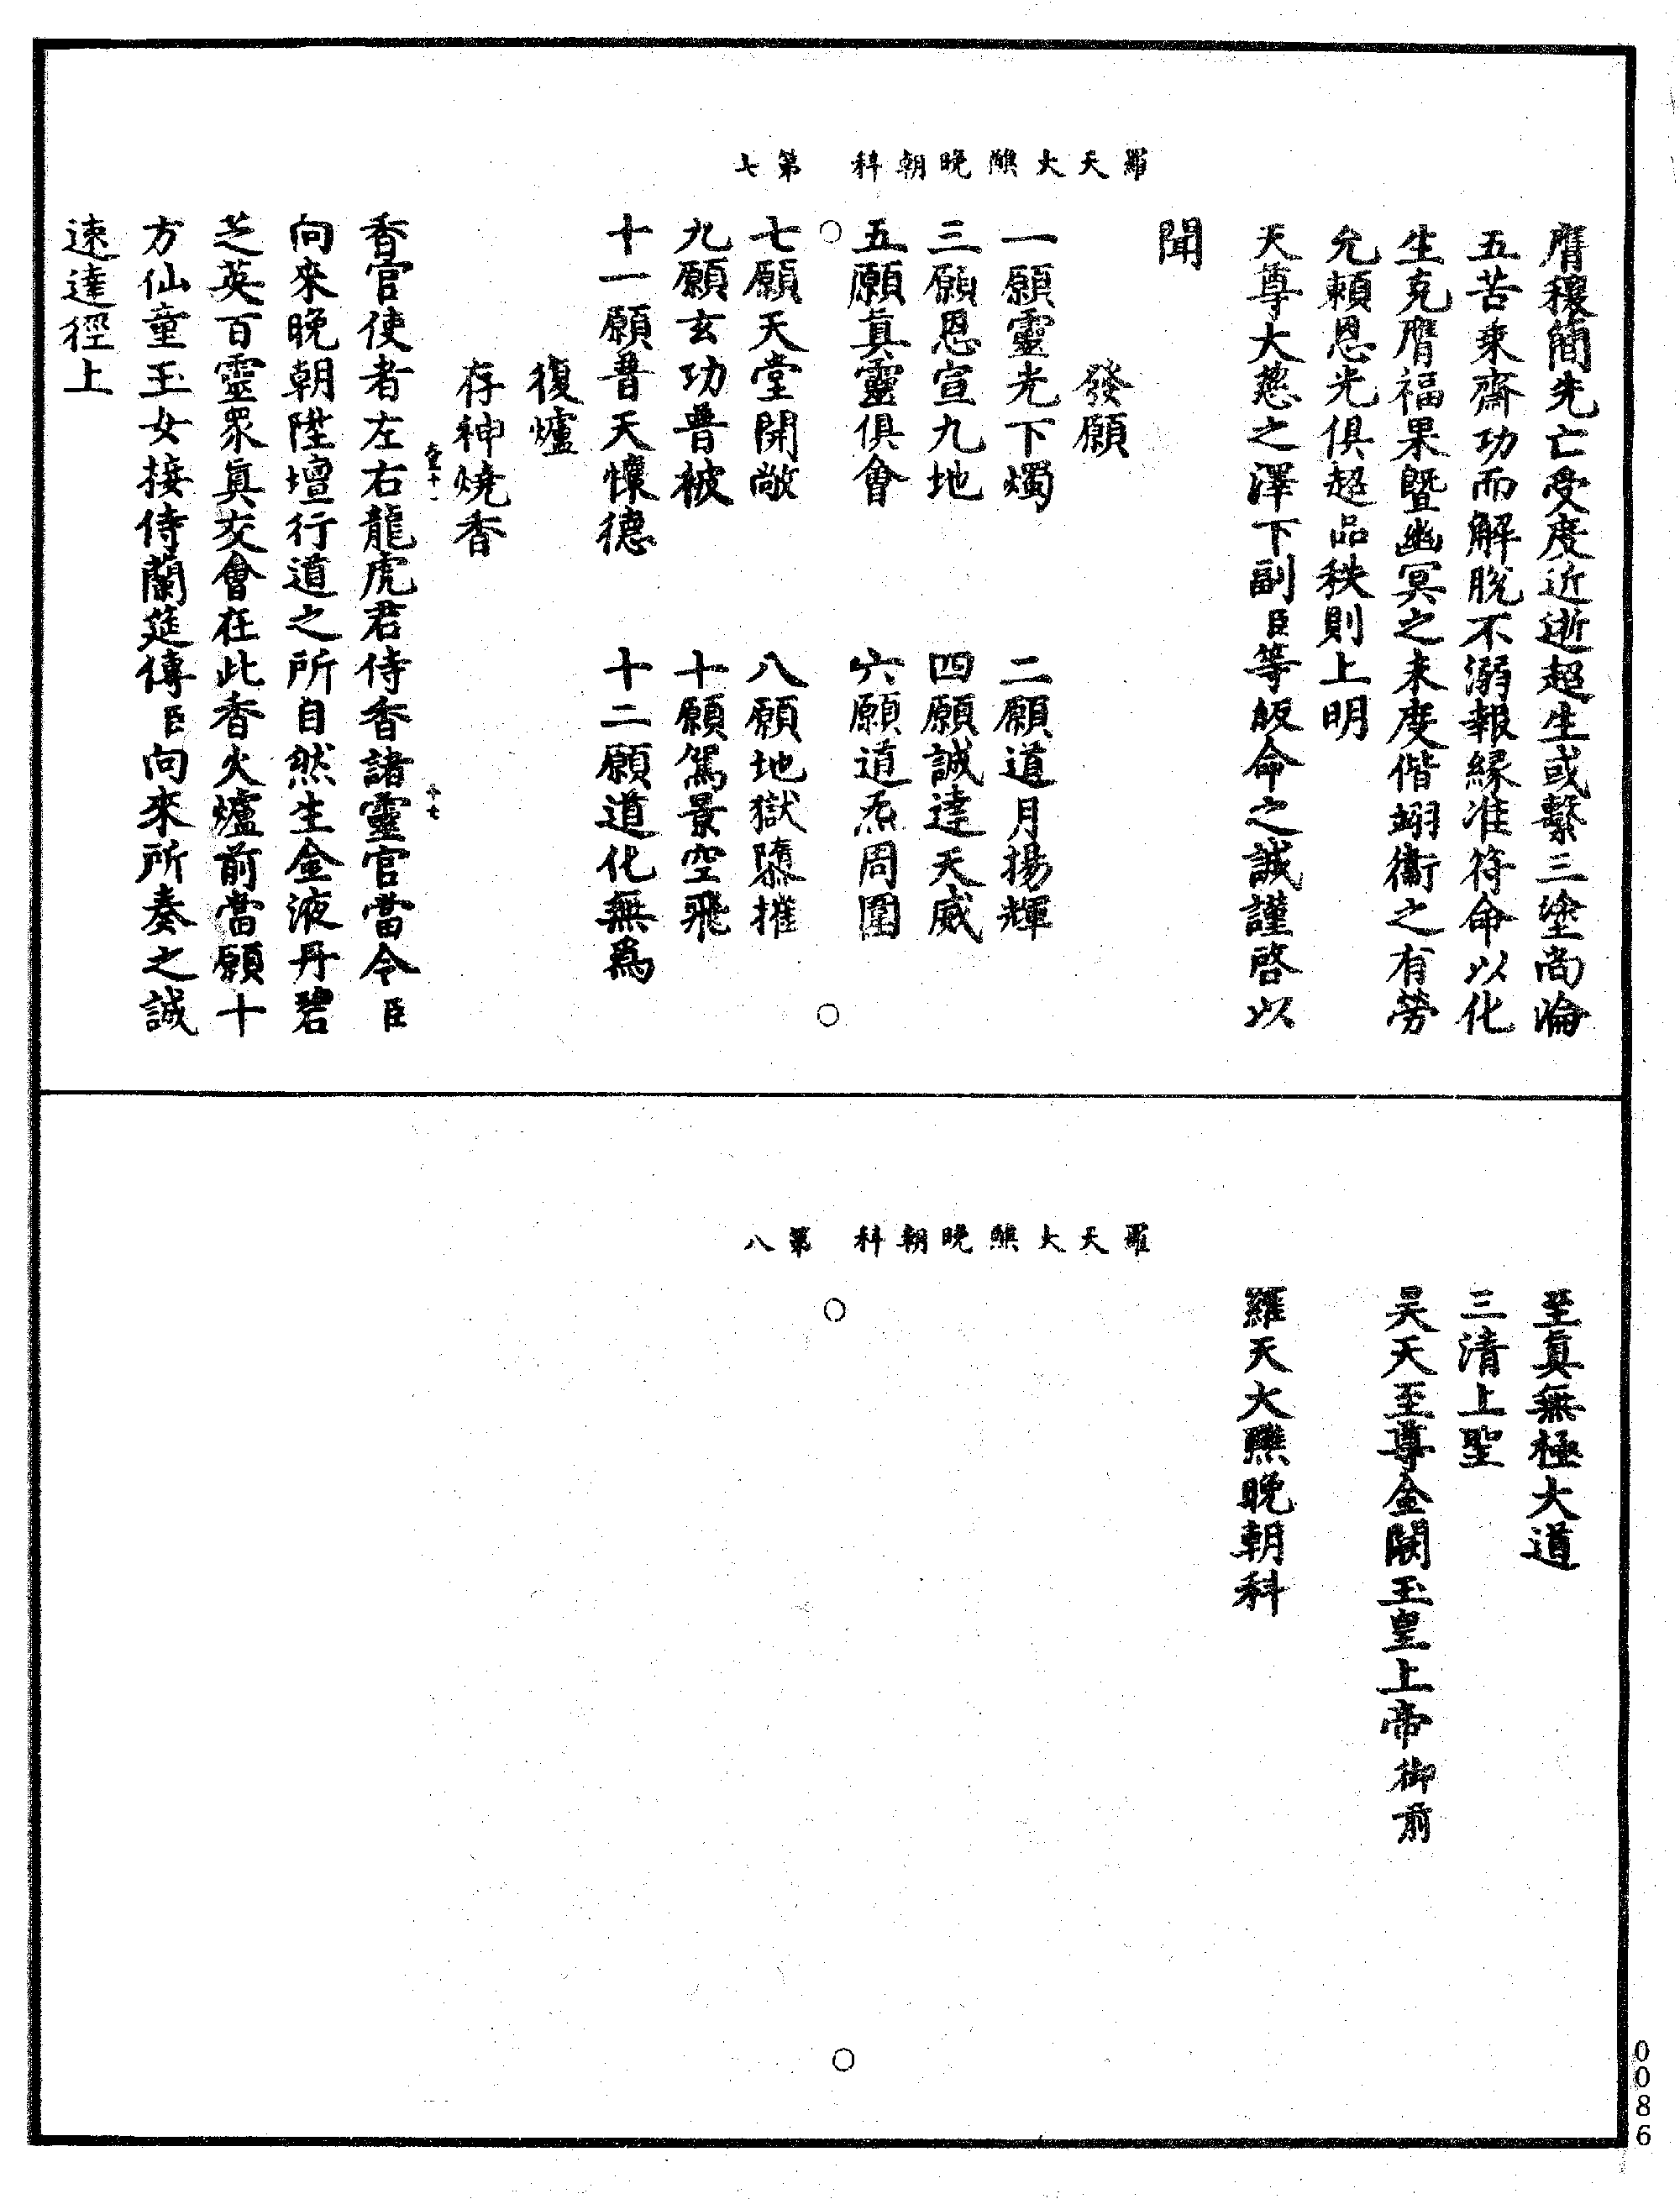 羅天大醮晚朝科　第七
膺穰簡先亡受度近逝超生或繫三塗尚淪
五苦乘齋功而解脫不溺報緣准符命以化
生克膺福果曁幽冥之未度偕翊衛之有勞
允賴恩光俱超品秩則上明
天尊大慈之澤下副臣等皈命之誠謹啓以
聞
發願
一願靈光下燭　二願道月揚輝
三願恩宣九地　四願誠達天威
五願眞靈俱會　六願道炁周圍
七願天堂開敞　八願地獄隳摧
九願玄功普被　十願駕景空飛
十一願普天懷德　十二願道化無爲
復爐
存神燒香
香官使者左右龍虎君侍香諸靈官當令臣
向來晚朝陞壇行道之所自然生金液丹碧
芝英百靈眾眞交會在此香火爐前當願十
方仙童玉女接侍蘭筵傳臣向來所奏之誠
速達徑上
羅天大醮晚朝科　第八
至眞無極大道
三清上聖
昊天至尊金闕玉皇上帝御前
羅天大醮晚朝科
0086